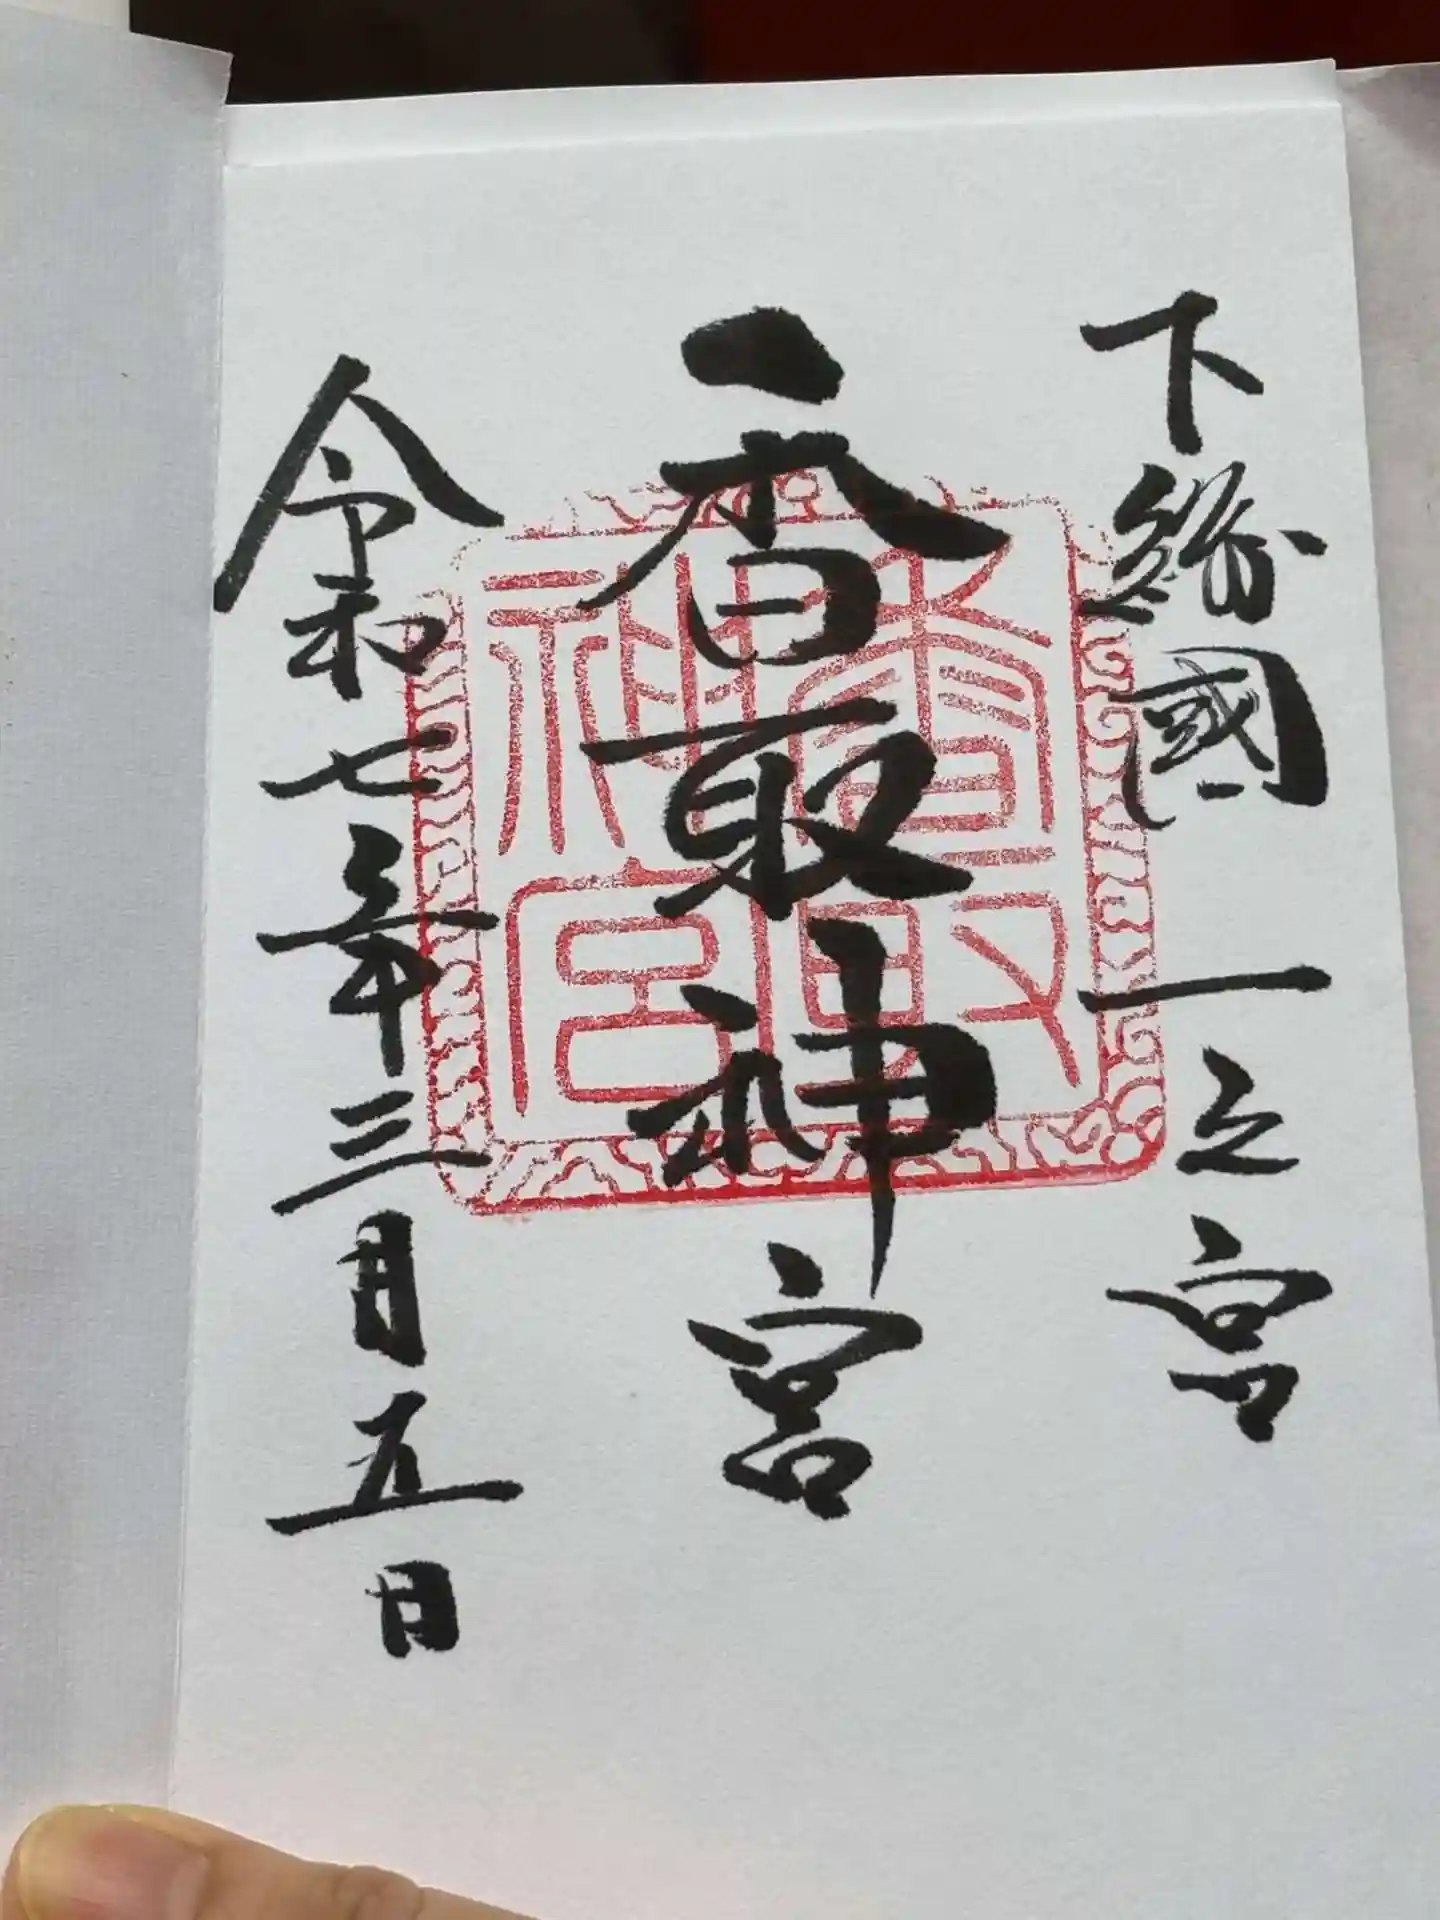 下総國 一之宮
香取神宮
令和七年三月五日
香取
神宮